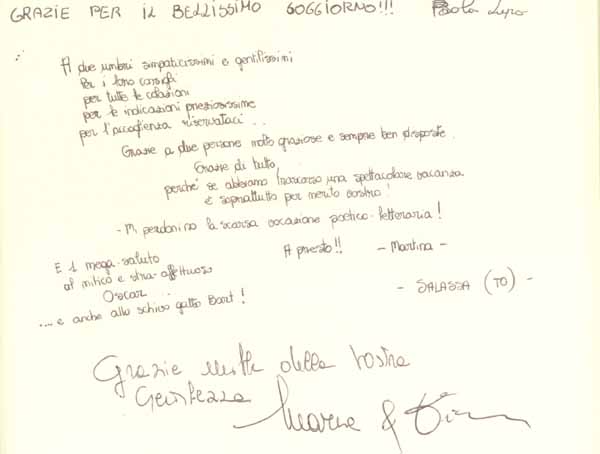 GRAZIE PER IL BELLISSIMO SOGGIORNO!!! Paola Lupo
A due umbri simpaticissimi e gentilissimi
Per i loro consigli
per tutte le colazioni
per le indicazioni preziosissime
per l'accoglienza riservataci...
Grazie a due persone molto graziose e sempre ben disposte.
Grazie di tutto,
perché se abbiamo trascorso una spettacolare vacanza
è soprattutto per merito vostro!
- Mi perdonino la scarsa vocazione poetico-letteraria!
A presto!! - Martina -
E 1 mega-saluto
al mitico e stra-affettuoso
Oscar...
.... e anche allo schivo gatto Bart!
- SALASSA (TO) -
Grazie della vostra
Gentilezza
&